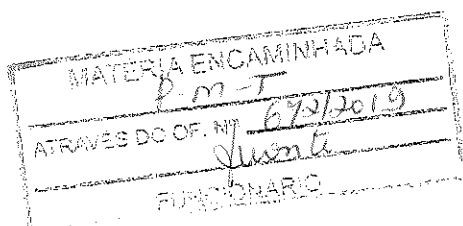 MATERIA ENCAMINHADA
P-M-T
ATRAVES DO OF. Nº 672/2019
FUNCIONARIO